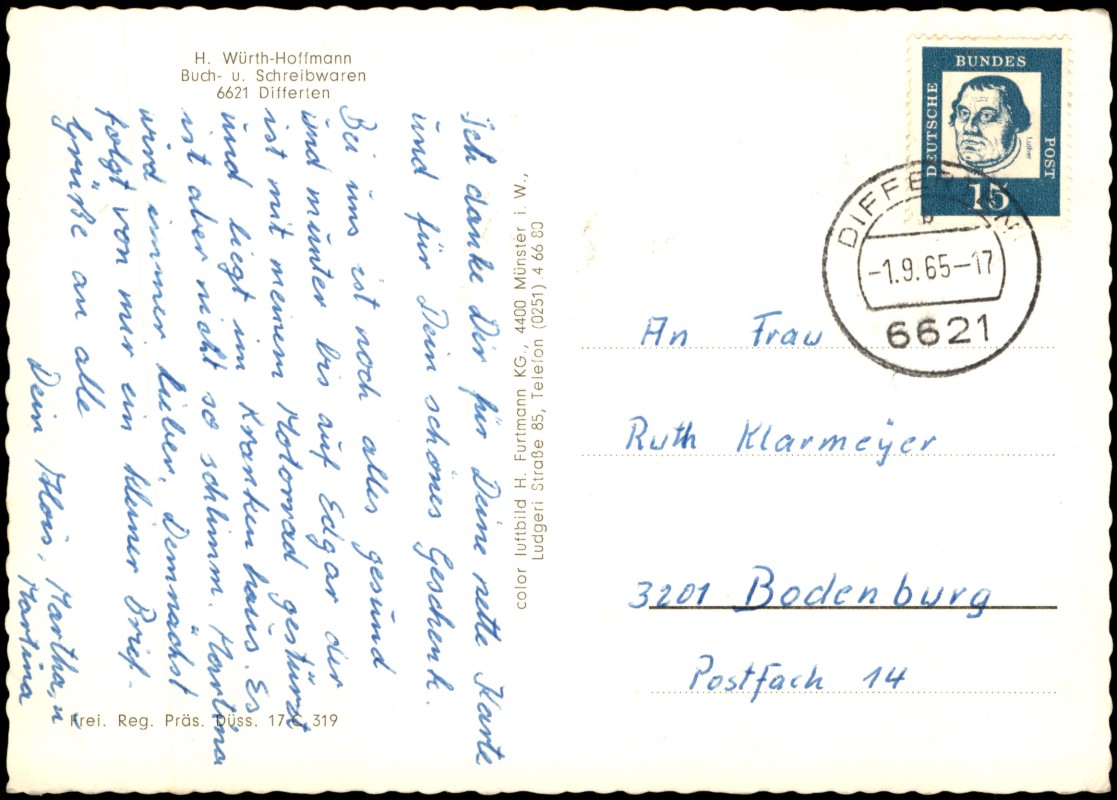 H. Würth-Hoffmann
Buch- u. Schreibwaren
6621 Differten
Ich danke Dir für Deine nette Karte
und für Dein schönes Geschenk.
Bei uns ist noch alles gesund
und munter bis auf Edgar der
ist mit meinem Motorrad gestürzt
und liegt im Krankenhaus. Es
ist aber nicht so schlimm. Martina
wird immer lieber. Demnächst
folgt von mir ein kleiner Brief.
Grüße an alle
Dein Alois, Martha, u
Martina
Frei. Reg. Präs. Düss. 17 C 319
color luftbild H. Furtmann KG., 4400 Münster i. W.,
Ludgeri Straße 85, Telefon (0251) 4 66 80
DEUTSCHE BUNDES POST
Luther
15
DIFFERTEN
b
-1.9.65-17
6621
An Frau
Ruth Klarmeyer
3201 Bodenburg
Postfach 14